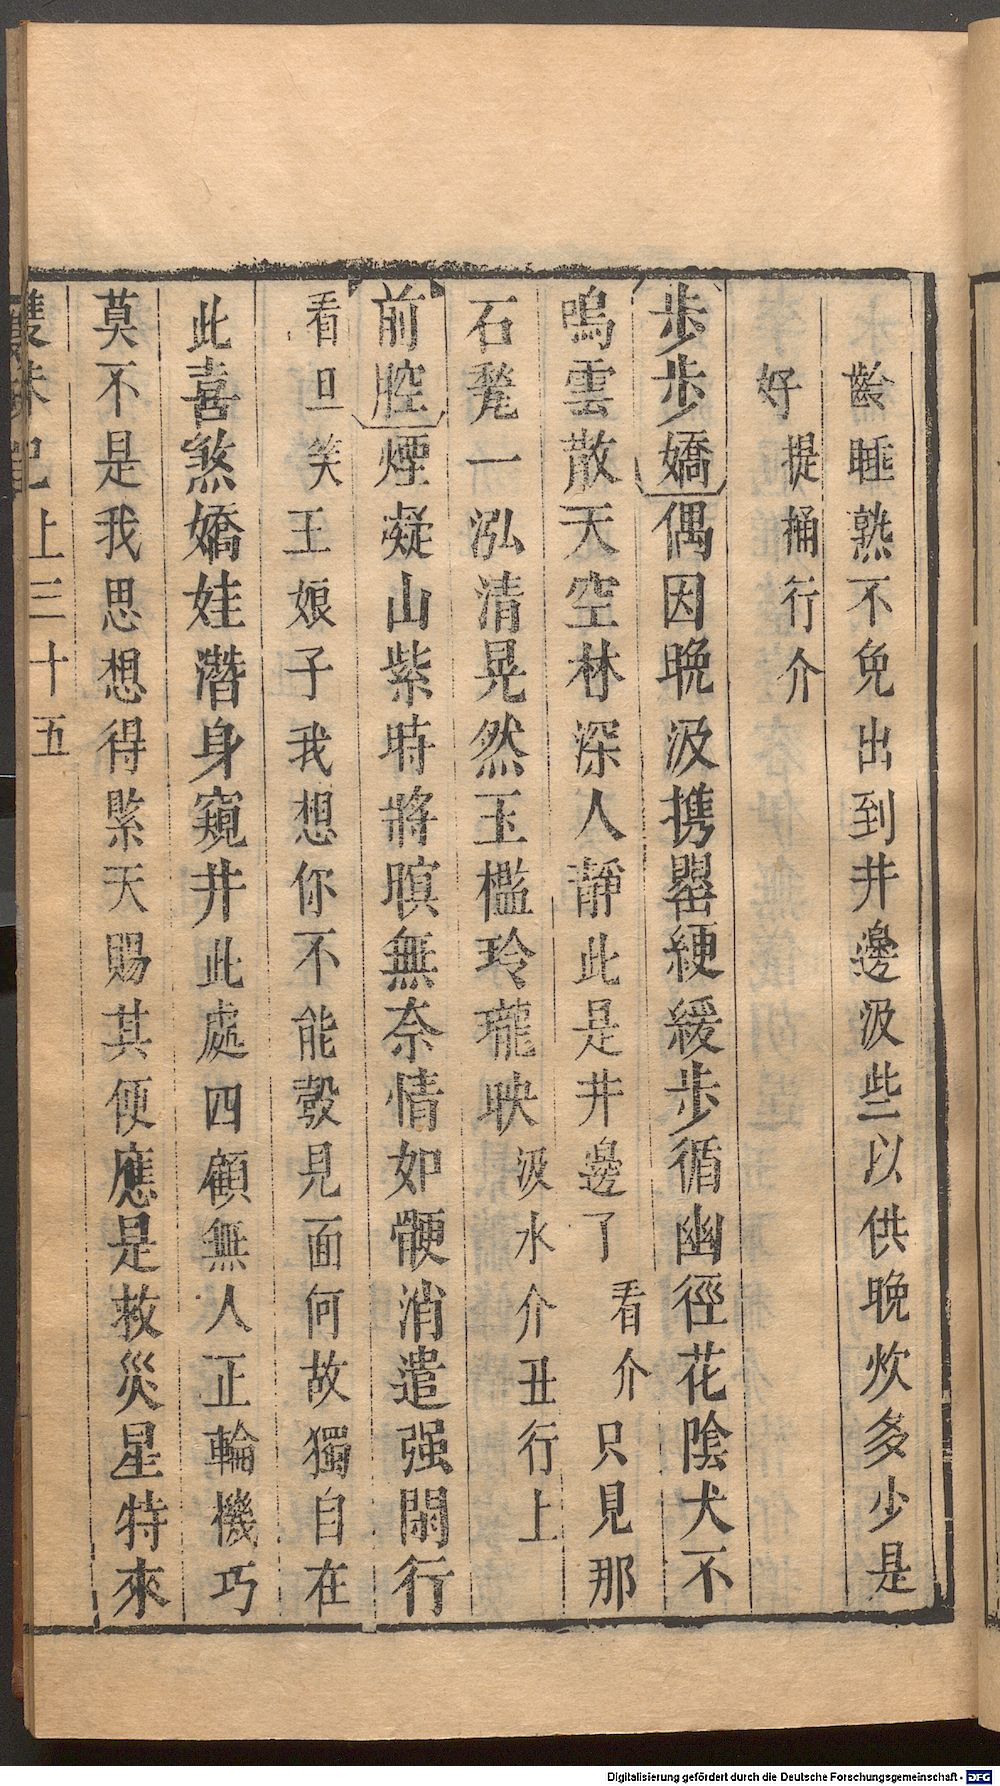 齡睡熟不免出到井邊汲些以供晚炊多少是
好提桶行介
步步嬌偶因晩汲携罌綆緩步循幽徑花陰犬不
鳴雲散天空林深人靜此是井邊了看介只見那
石甃一泓清晃然玉檻玲瓏映汲水介丑行上
前腔煙凝山紫時將暝無奈情如骾消遣强閑行
看旦笑王娘子我想你不能彀見面何故獨自在
此喜煞嬌娃潛身窺井此處四顧無人正輪機巧
莫不是我思想得緊天賜其便應是救災星特來
雙珠記上三十五
Digitalisierung gefördert durch die Deutsche Forschungsgemeinschaft - DFG